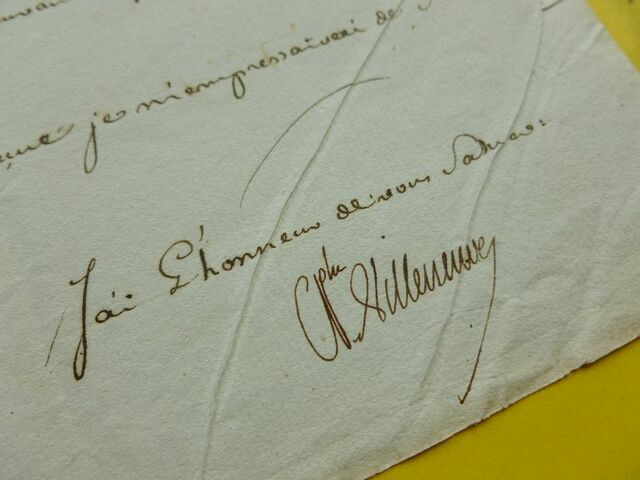 je m'empresserai de
J'ai L'honneur de vous Saluer.
Villeneuve